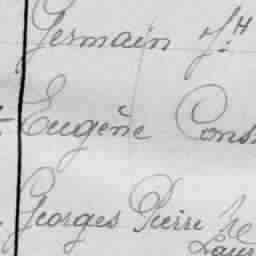 Germain Jh
Eugène Cons
Georges Pierre